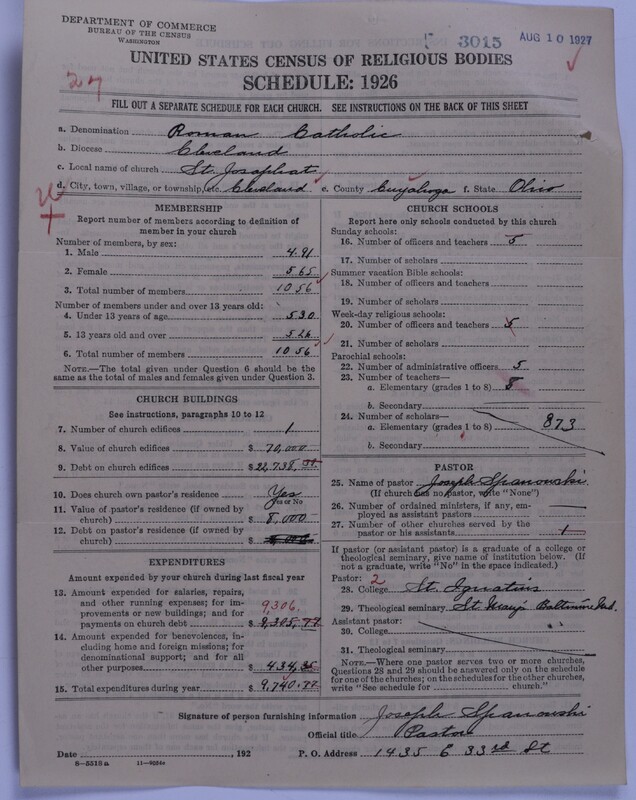 DEPARTMENT OF COMMERCE
BUREAU OF THE CENSUS
WASHINGTON
3015 AUG 10 1927
UNITED STATES CENSUS OF RELIGIOUS BODIES
SCHEDULE: 1926
27
FILL OUT A SEPARATE SCHEDULE FOR EACH CHURCH. SEE INSTRUCTIONS ON THE BACK OF THIS SHEET
a. Denomination Roman Catholic
b. Diocese Cleveland
c. Local name of church St. Josaphat
d. City, town, village, or township, etc. Cleveland e. County Cuyahoga f. State Ohio
MEMBERSHIP
Report number of members according to definition of
member in your church
Number of members, by sex:
1. Male 491
2. Female 565
3. Total number of members 1056
Number of members under and over 13 years old:
4. Under 13 years of age 530
5. 13 years old and over 526
6. Total number of members 1056
NOTE.—The total given under Question 6 should be
same as the total of males and females given under Question 3.
CHURCH BUILDINGS
See instructions, paragraphs 10 to 12
7. Number of church edifices 1
8. Value of church edifices $ 70,000
9. Debt on church edifices $ 22,738.
10. Does church own pastor's residence Yes
Yes or No
11. Value of pastor's residence (if owned by
church) $ 8,000
12. Debt on pastor's residence (if owned by
church) $
EXPENDITURES
Amount expended by your church during last fiscal year
13. Amount expended for salaries, repairs,
and other running expenses; for im-
provements or new buildings; and for
payments on church debt $ 9,305.77
9,306.
14. Amount expended for benevolences, in-
cluding home and foreign missions; for
denominational support; and for all
other purposes $ 434.35
15. Total expenditures during year $ 9,740.77
CHURCH SCHOOLS
Report here only schools conducted by this church
Sunday schools:
16. Number of officers and teachers 5
17. Number of scholars
Summer vacation Bible schools:
18. Number of officers and teachers
19. Number of scholars
Week-day religious schools:
20. Number of officers and teachers 5
21. Number of scholars
Parochial schools:
22. Number of administrative officers 5
23. Number of teachers—
a. Elementary (grades 1 to 8) 8
b. Secondary
24. Number of scholars—
a. Elementary (grades 1 to 8) 873
b. Secondary
PASTOR
25. Name of pastor Joseph Spanowski
(If church has no pastor, write "None")
26. Number of ordained ministers, if any, em-
ployed as assistant pastors
27. Number of other churches served by the
pastor or his assistants 1
If pastor (or assistant pastor) is a graduate of a college or
theological seminary, give name of institution below. (If
not a graduate, write "No" in the space indicated.)
Pastor: 2
28. College St. Ignatius
29. Theological seminary St Mary's Baltimore Md.
Assistant pastor:
30. College
31. Theological seminary
NOTE.—Where one pastor serves two or more churches,
Questions 28 and 29 should be answered only on the schedule
for one of the churches; on the schedules for the other churches,
write "See schedule for church."
Signature of person furnishing information Joseph Spanowski
Official title Pastor
Date , 192 P. O. Address 1435 E 33rd St
8-5518a